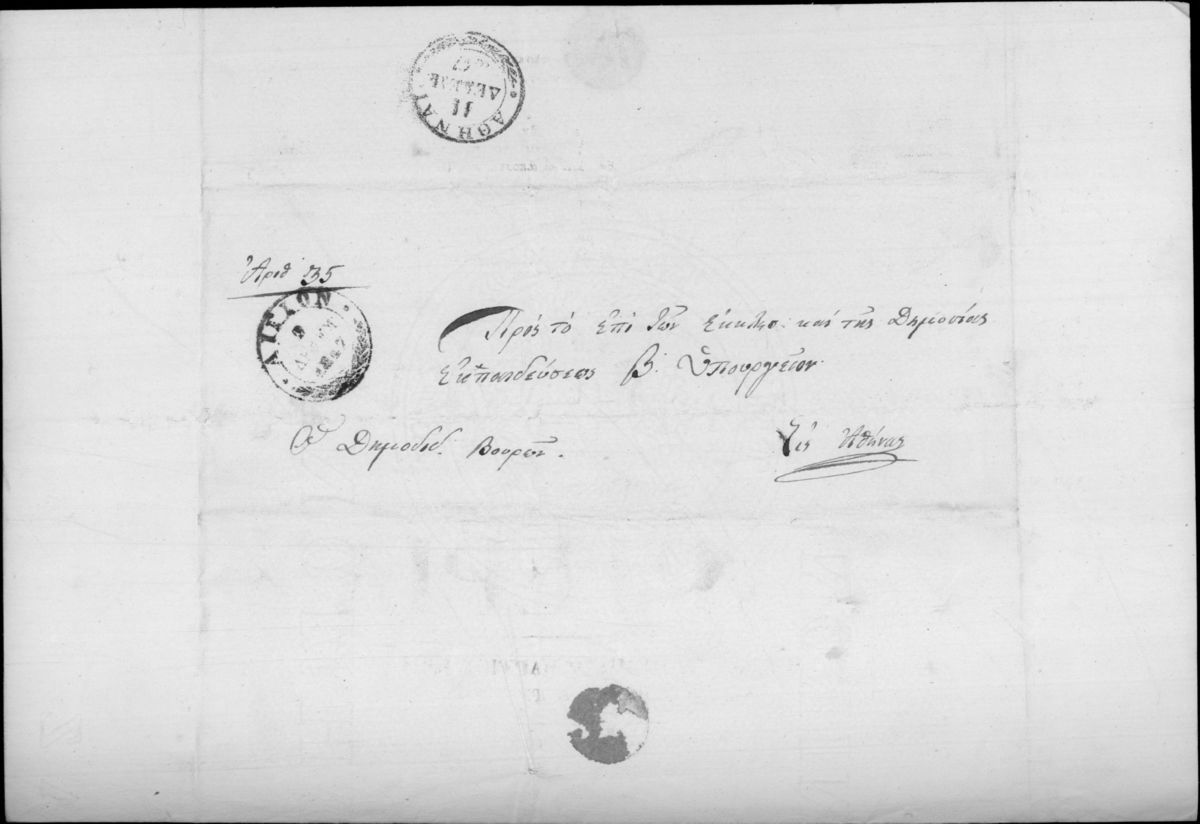 ΑΘΗΝΑΙ
11
ΔΕΚΕΜ
Ἀριθ 135
ΑΙΓΙΟΝ
9
ΔΕΚΕΜ
1847
Πρὸς τὸ ἐπὶ τῶν Ἐκκλησ: καὶ τῆς Δημοσίας
Ἐκπαιδεύσεως Β: Ὑπουργεῖον
Ὁ Δημοδιδ: Βουρῶν.
Εἰς Ἀθήνας